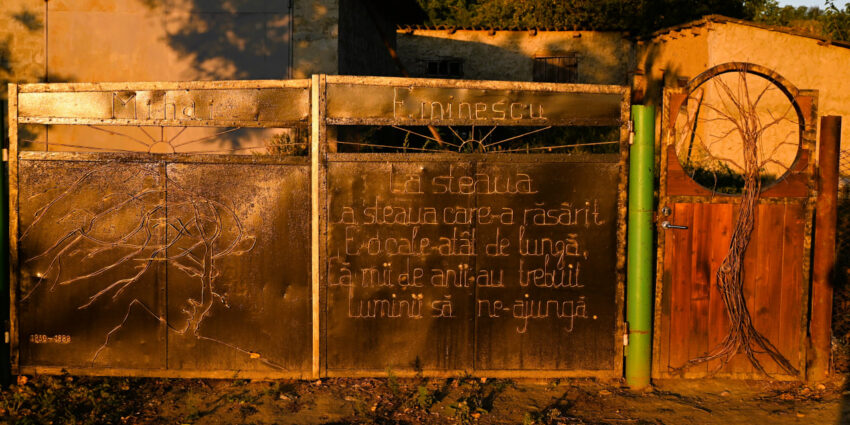 Mihai Eminescu
La steaua
La steaua care-a răsărit
E-o cale-atât de lungă,
Că mii de ani i-au trebuit
Luminii să ne-ajungă.
1850-1889